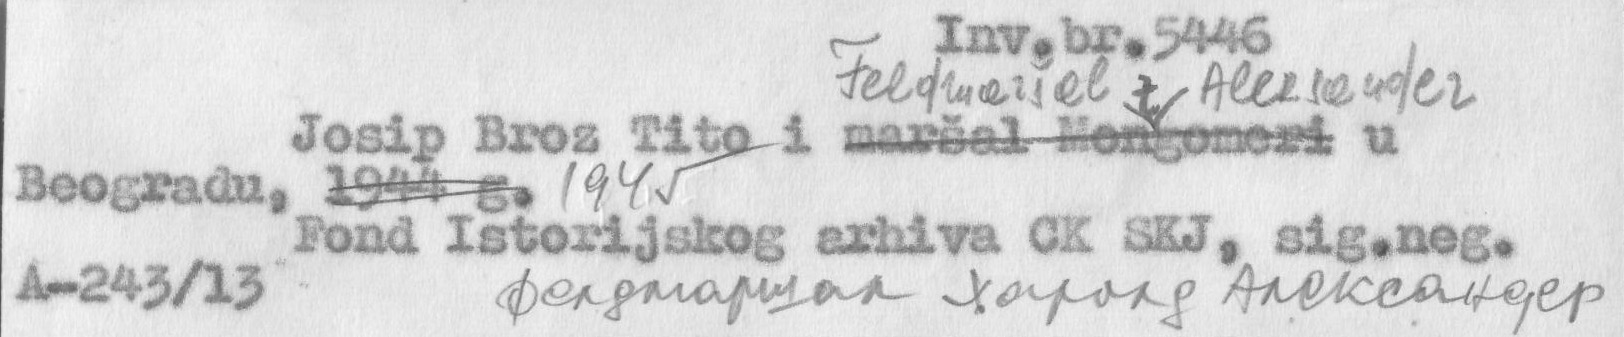 Inv.br.5446
Feldmaršal Aleksander
Josip Broz Tito i maršal Mongomeri u
Beogradu, 1944 g. 1945
Fond Istorijskog arhiva CK SKJ, sig.neg.
A-243/13
фелдмаршал Харолд Александер